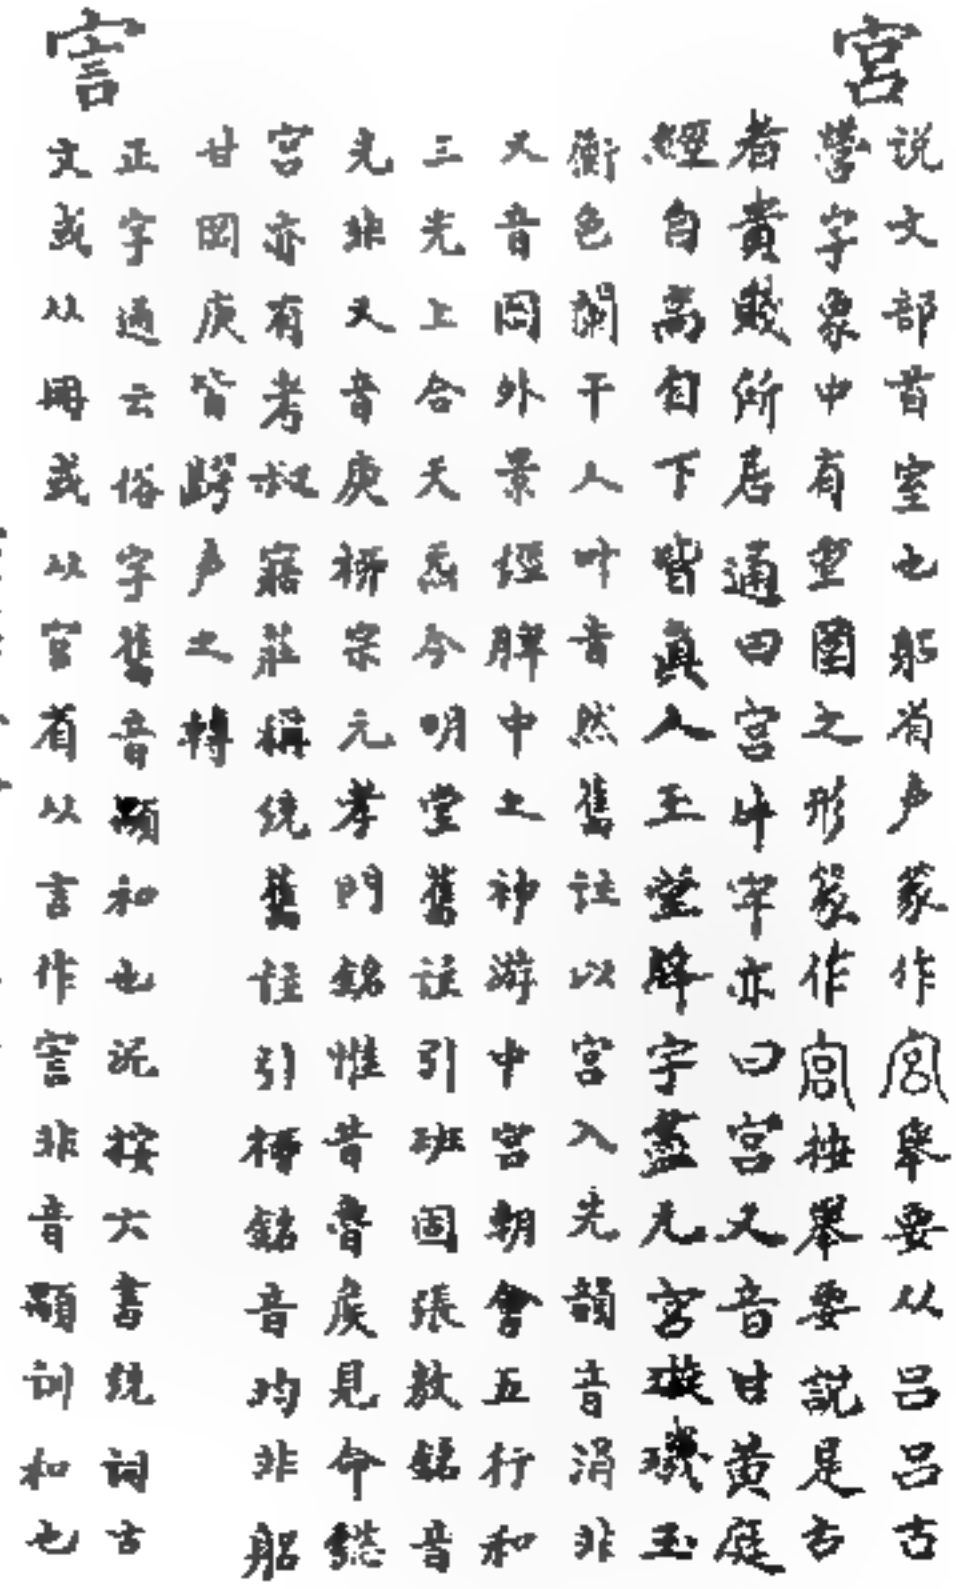 宮
说文部首室也躬省声篆作宮舉要从吕吕古
學字象中有垔圍之形篆作宮按舉要説是古
者貴賤所居通曰宮牛宰亦曰宮又音甘黄庭
經自高自下皆真人玉堂絳宇盡元宮璇璣玉
衡色闌干人叶音然舊註以宮入先韻音涓非
又音冏外景經脾中之神游中宮朝會五行和
三光上合天炁今明堂舊註引班固張敖銘音
光非又音庚栟宗元孝門銘惟昔魯侯見命懿
宮亦有考叔寤莊稱统舊註引栟銘音均非躳
甘岡庚皆諤声之轉
言
正字通云俗字舊音顯和也沅按六書统詞古
文或从冊或从宮省从言作言非音顯訓和也